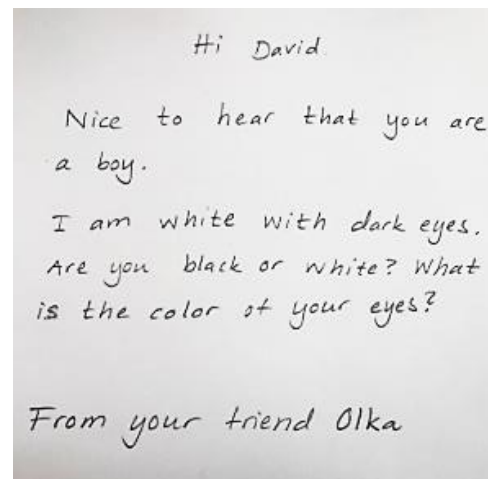 Hi David
Nice to hear that you are
a boy.
I am white with dark eyes.
Are you black or white? What
is the color of your eyes?
From your friend Olka